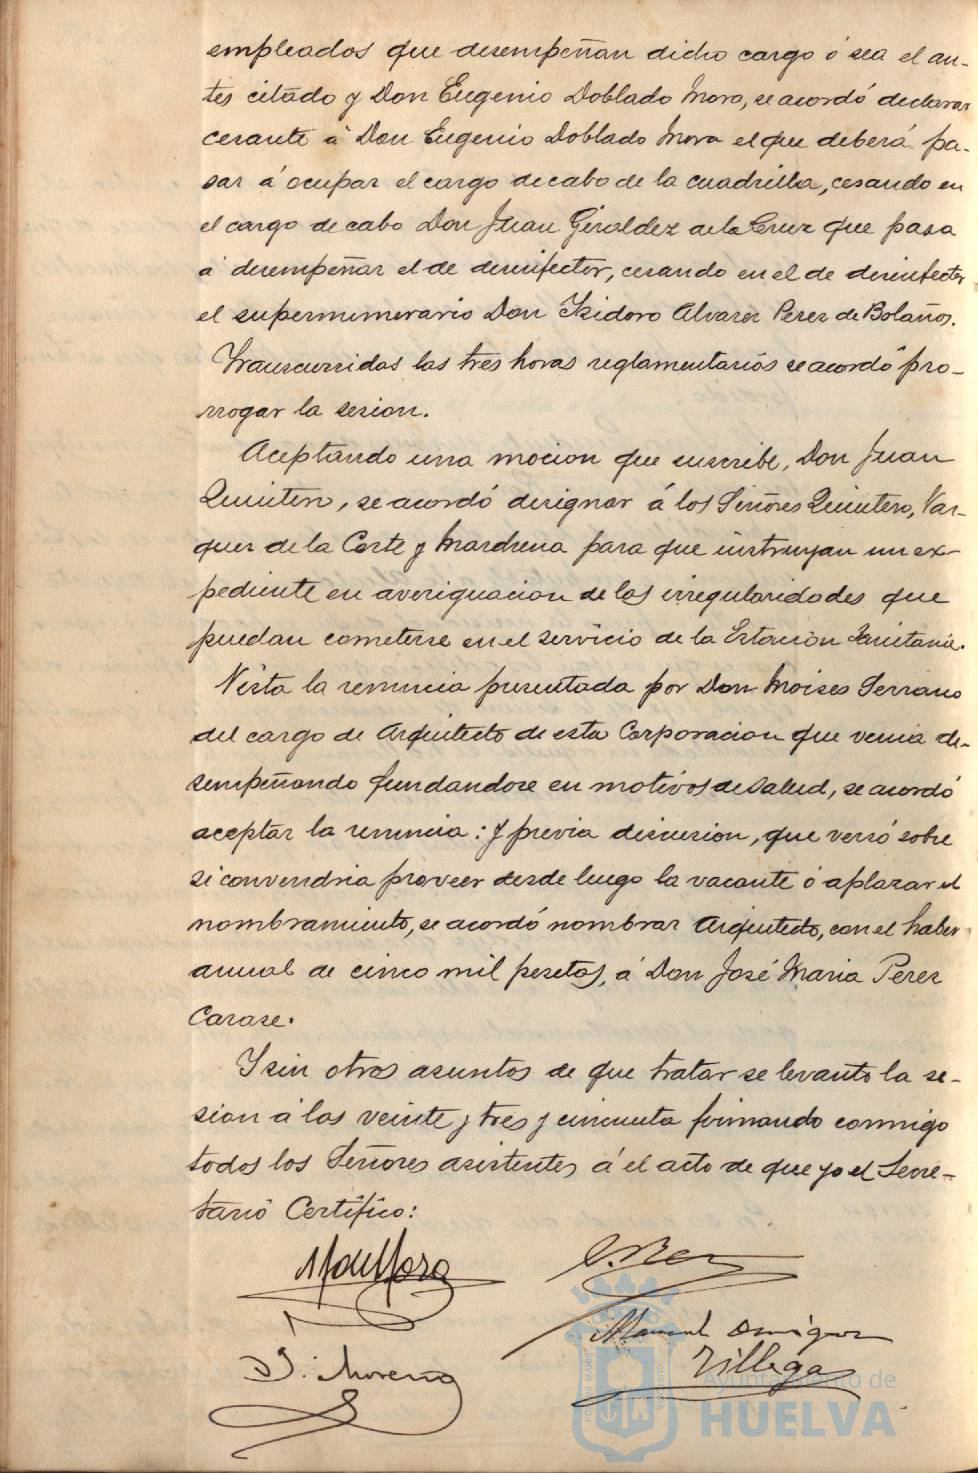 empleados que desempeñan dicho cargo ó sea el an-
tes citado y Don Eugenio Doblado Mora, se acordó declarar
cesante á Don Eugenio Doblado Mora el que deberá pa-
sar á ocupar el cargo de cabo de la cuadrilla, cesando en
el cargo de cabo Don Juan Giraldez de la Cruz que pasa
á desempeñar el de desinfector, cesando en el de desinfector
el supernumerario Don Isidoro Alvarez Perez de Bolaños.
Transcurridas las tres horas reglamentarias se acordó pro-
rrogar la sesion.
Aceptando una mocion que suscribe, Don Juan
Quintero, se acordó designar á los Señores Quintero, Vaz-
quez de la Corte y Marchena para que instruyan un ex-
pediente en averiguacion de las irregularidades que
puedan cometerse en el servicio de la Estacion Sanitaria.
Vista la renuncia presentada por Don Moises Serrano
del cargo de Arquitecto de esta Corporacion que venia de-
sempeñando fundandose en motivos de salud, se acordó
aceptar la renuncia: y previa discusion, que versó sobre
si convendria proveer desde luego la vacante ó aplazar el
nombramiento, se acordó nombrar Arquitecto, con el haber
anual de cinco mil pesetas, á Don José Maria Perez
Carasa.
Y sin otros asuntos de que tratar se levanto la se-
sion á las veinte y tres y cincuenta firmando conmigo
todos los Señores asistentes á el acto de que yo el Secre-
tario Certifico:
Manuel Dominguez
J. Moreno
Villegas
Ayuntamiento de
HUELVA